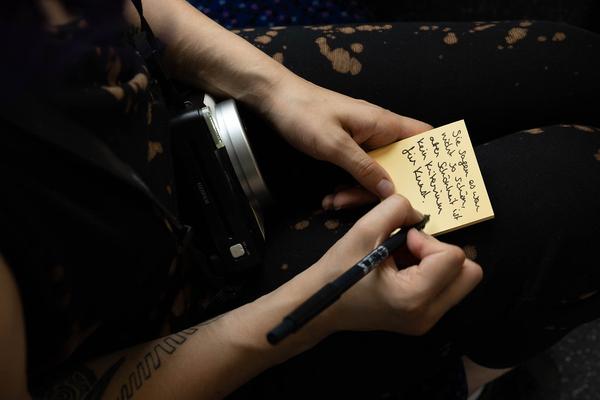 Sie sagen es war
nicht so schön,
aber Schönheit ist
kein Kriterium
für Kunst.